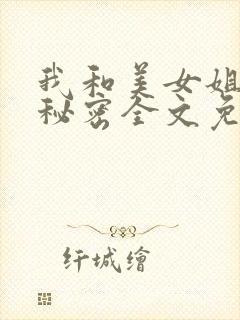 我和美女姐
秘密全文免
纤城绘